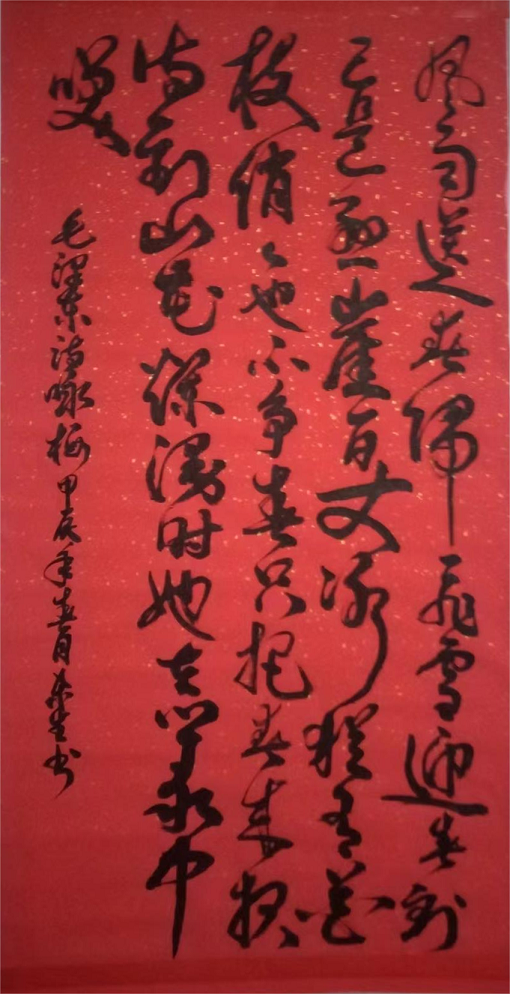 风雨送春归飞雪迎春到
已是悬崖百丈冰犹有花
枝俏々也不争春只把春来报
待到山花烂漫时她在丛中
咲
毛泽东诗咏梅甲辰年春月生书